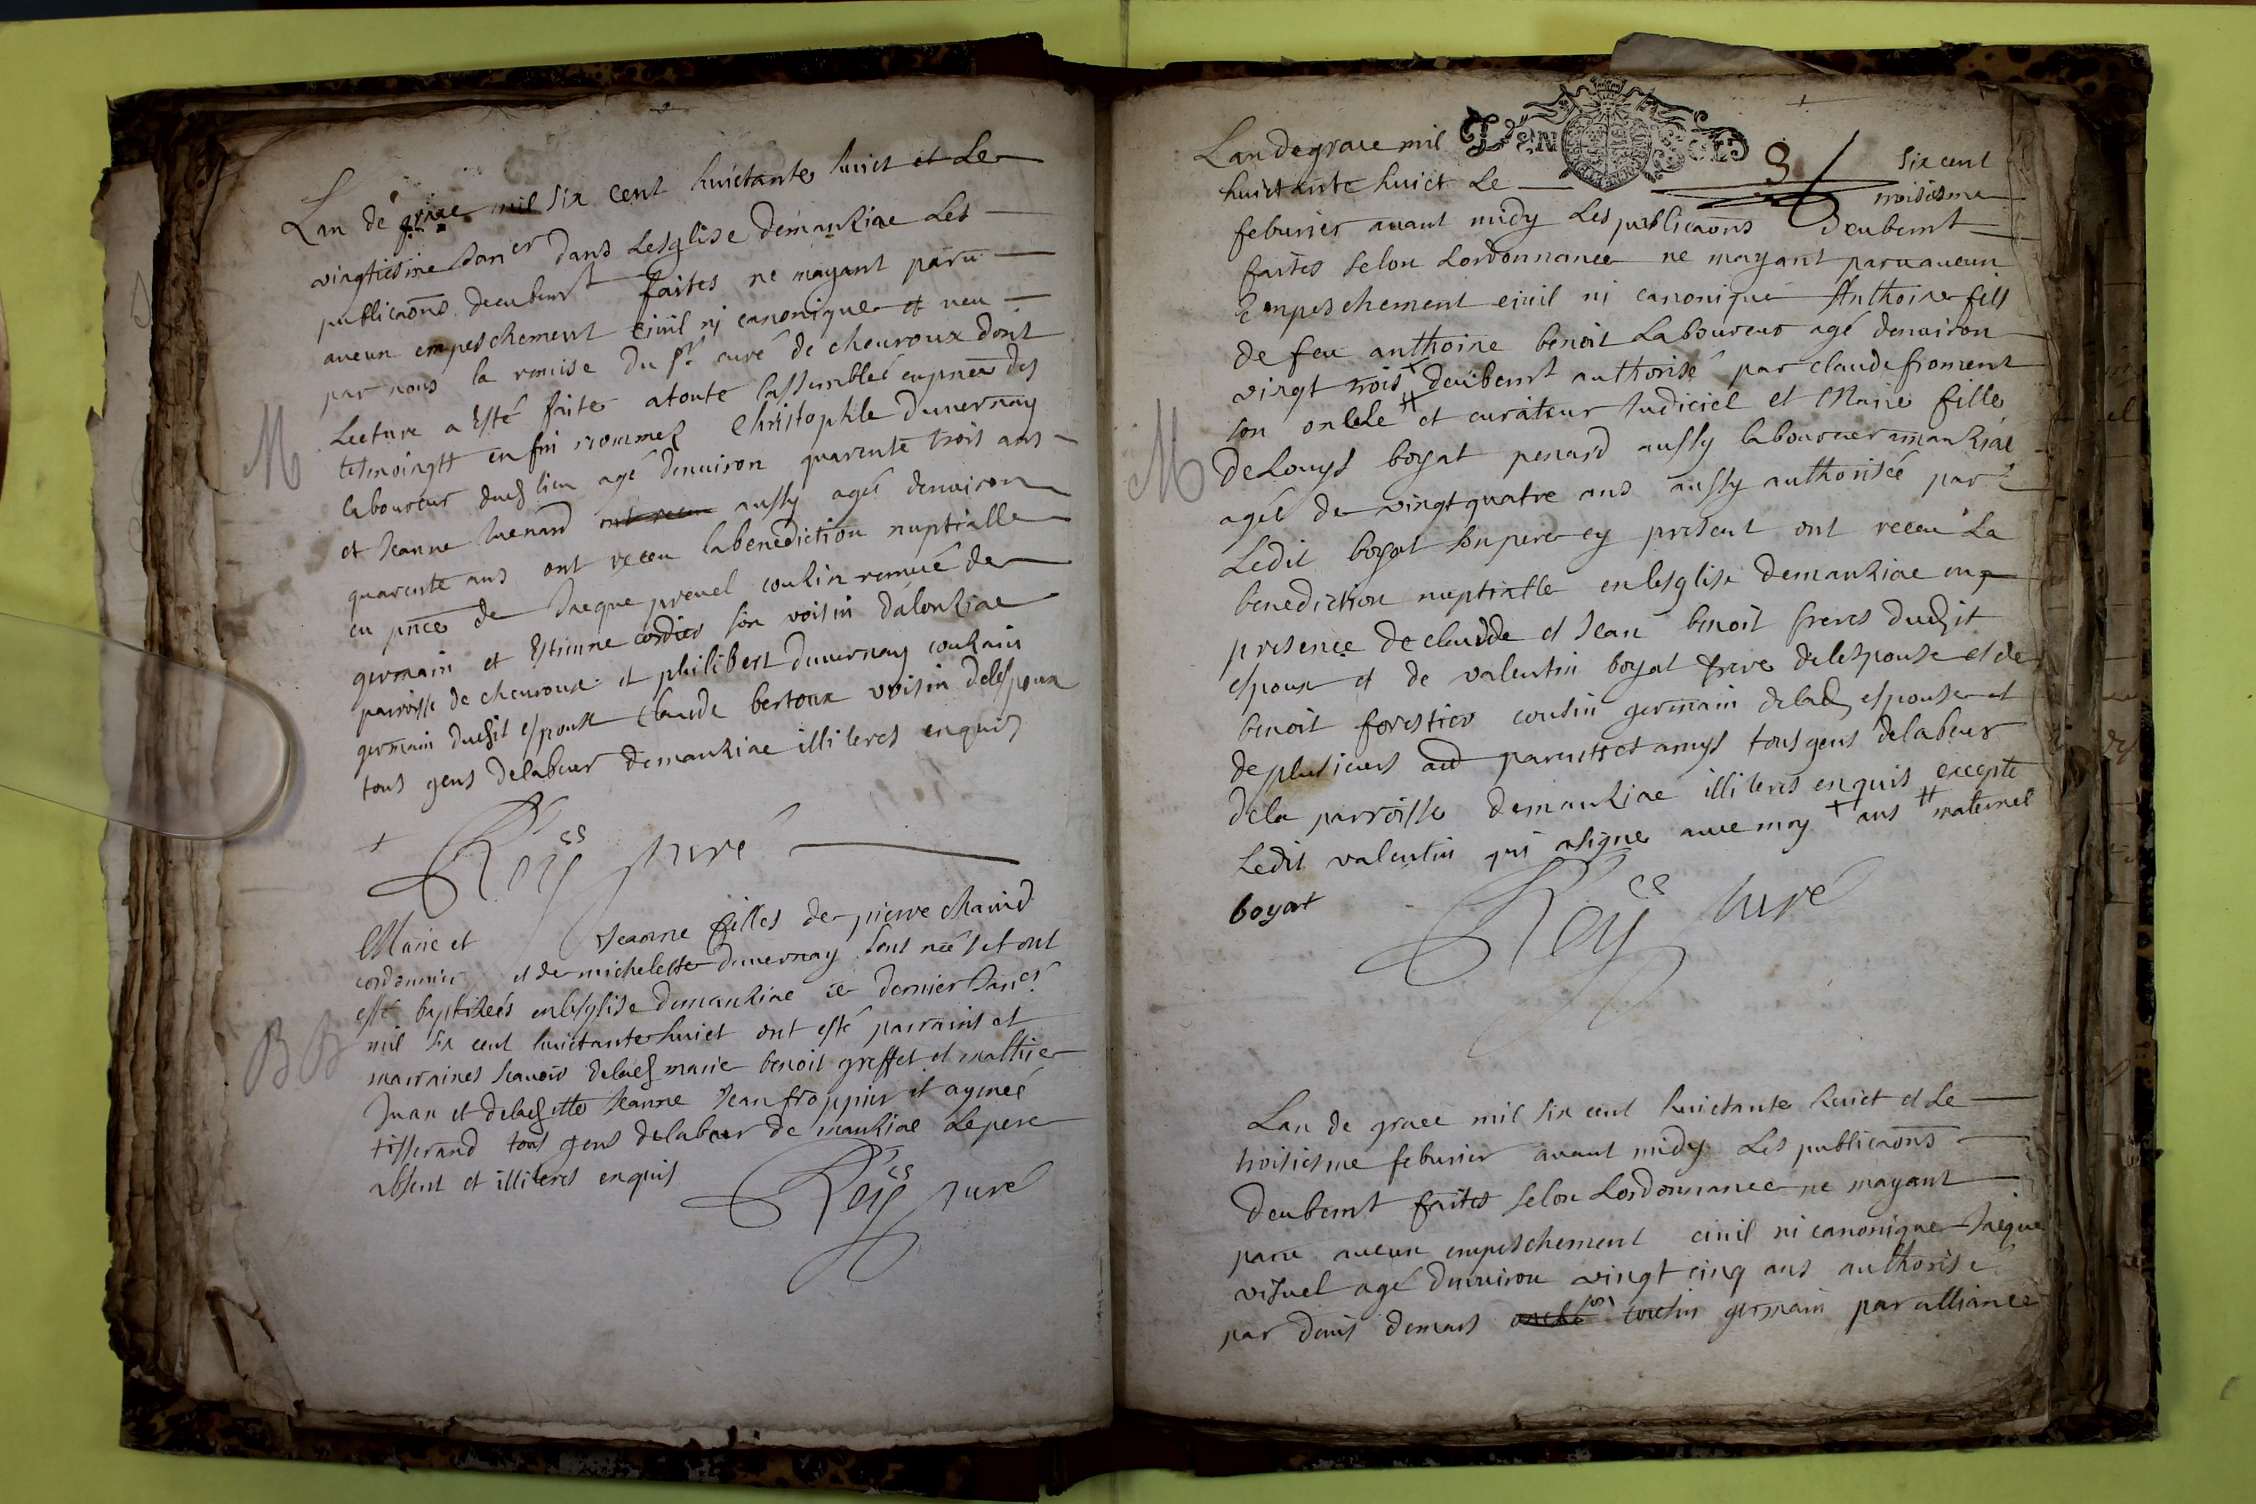 Lan de grace mil six cent huictante huict et Le
vingtiesme Janer dans Lesglise demanziac Les
publicaons deubemt faites ne mayant paru
aucun empeschement civil nj canonique et veu
par nous la remise du sr curé de chevroux dont
Lecture a Esté faite atoute lassemblée enpnce des
tesmoings en fin nommez Christophle duvernay
laboureur dud lieu agé denviron quarente trois ans
et Jeanne aussy agée denviron
quarente ans ont receu labenediction nuptialle
en pnce de Jacque prevel couzin remué de
germain et Estienne cordier son voisin
paroisse de chevroux et philibert duvernay couzain
germain dudit espoux Claude bertoux voisin delespoux
tous gens delabeur demanziac illiteres enquis
Roÿ curé
M
Marie et Jeanne filles de pierre
cordonnier et de michelette duvernay sont nées et ont
esté baptizées enlesglise demanziac ce dernier Janer
mil six cent huictante huict ont esté parrains et
marraines scavoir delad marie benoit greffet et
Juan et delad Jeanne Jean froppier et aymée
tisserand tous gens delabeur de manziac Lepere
absent et illiteres enquis
Roÿ curé
B B
Lan de grace mil six cent
huictante huict Le troisiesme
feburier avant midy Les publicaons deubemt
faites selon Lordonnance ne mayant paru aucun
Empeschement civil ni canonique Anthoine fils
de feu anthoine benoit Laboureur agé denviron
vingt trois + deubemt authorisé par claude froment
son oncle # et curateur Judiciel et Marie fille
de Louys boyat penard aussy laboureur manziac
agée de vingt quatre ans aussy authorisée par
Ledit boyat son pere cy present ont receu La
benediction nuptialle enlesglise demanziac en
presence de claude et Jean benoit freres dudit
espoux et de valentin boyat frere delespouse et de
benoit forestier cousin germain delad espouse et
de plusieurs parents et amys tous gens delabeur
dela parroisse demanziac illiteres enquis excepte
Ledit valentin qui asigne avec moy + ans # maternel
boyat
Roÿ curé
M
Lan de grace mil six cent huictante huict et Le
troisiesme feburier avant midy Les publicaons
deubemt faites selon Lordonnance ne mayant
paru aucun empeschement civil ni canonique Jacque
visuel agé denviron vingt cinq ans authorisé
par denis demars son cousin germain par alliance